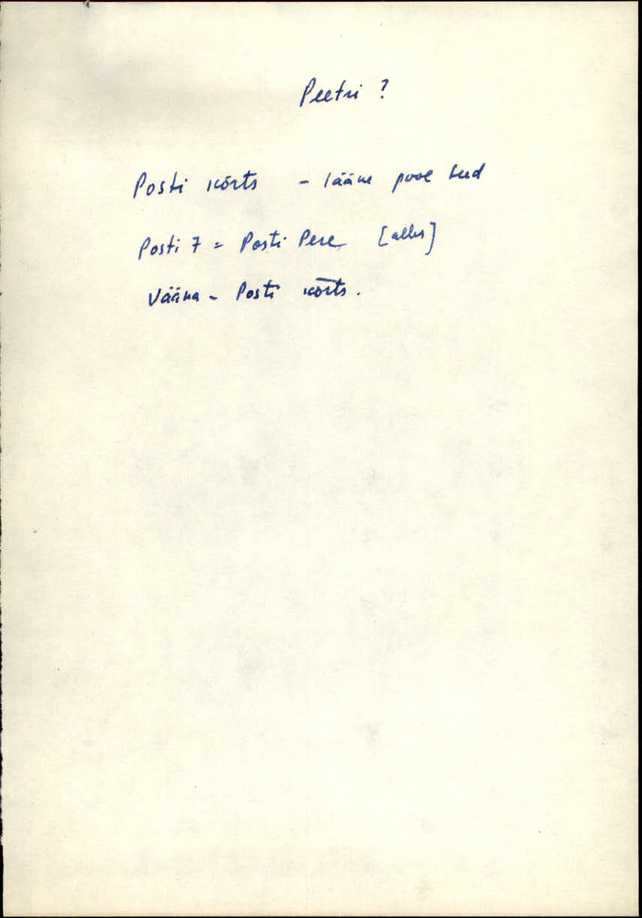 Peetri ?
Posti kõrts - lääne pool teed
Posti 7 = Posti Pere [alles]
Vääna - Posti kõrts.